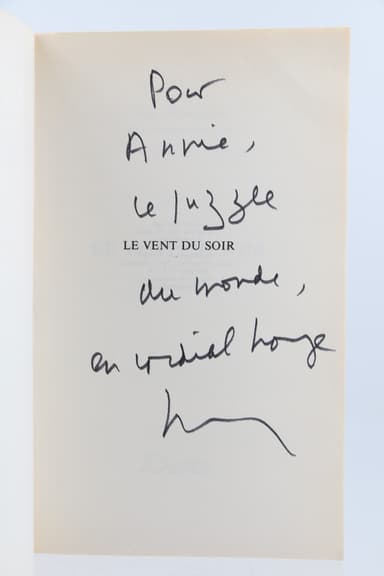 Pour
Annie,
le puzzle
LE VENT DU SOIR
du monde,
en cordial homage